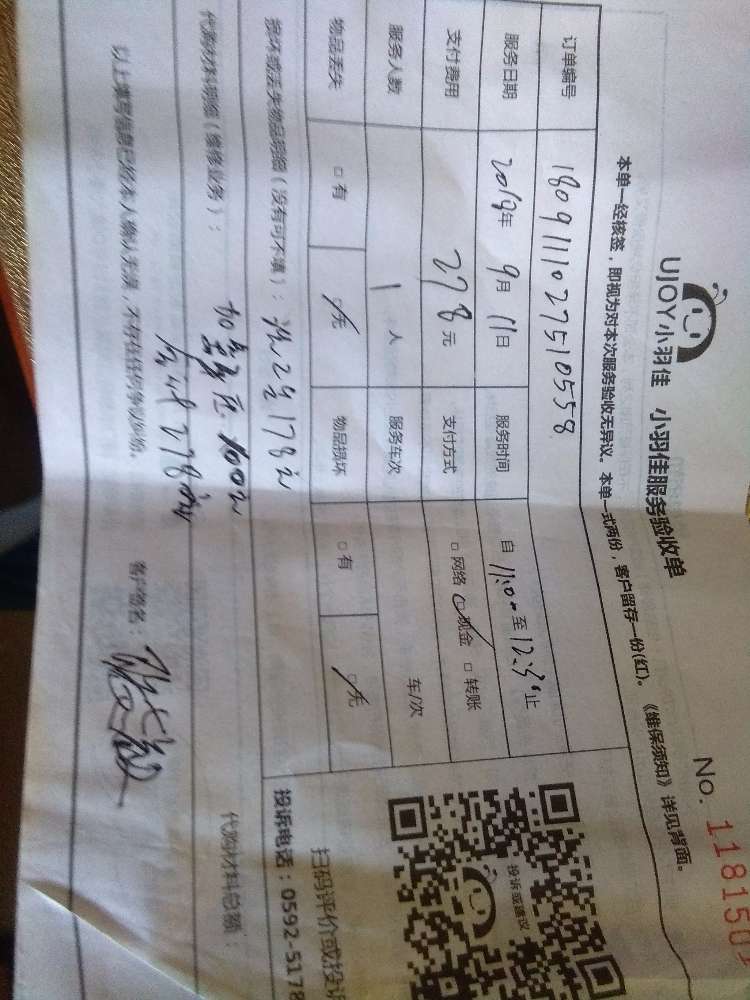 UJOY小羽佳 小羽佳服务验收单
No. 1181501
本单一经核签，即视为对本次服务验收无异议。本单一式两份，客户留存一份(红)。《维保须知》详见背面。
订单编号 1809111027510558
服务日期 2018年 9月 11日 服务时间 自 11:00 至 12:30 止
支付费用 278 元 支付方式 □ 网络 ☑ 现金 □ 转账
服务人数 1 人 服务车次 车/次
物品丢失 □ 有 ☑ 无 物品损坏 □ 有 ☑ 无
损坏或丢失物品明细（没有可不填）： 178元
代购材料明细（维修业务）： 加 100元
代购材料总额：
合计278元
以上填写信息已经本人确认无误，不存在任何争议纠纷。
客户签名：
投诉或建议
扫码评价或投诉
投诉电话：0592-5178